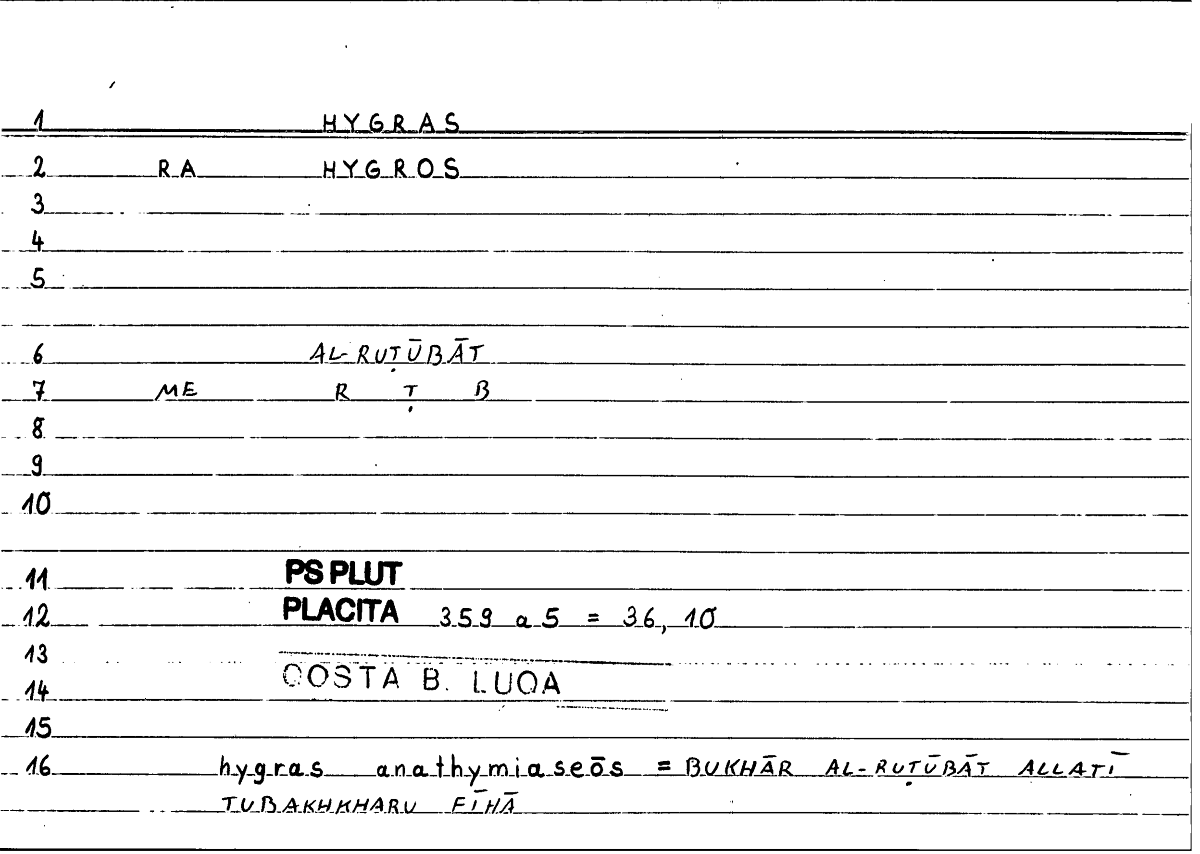 1 HYGRAS
2 RA HYGROS
3
4
5
6 AL-RUṬŪBĀT
7 ME R Ṭ B
8
9
10
11 PS PLUT
12 PLACITA 359 a 5 = 36, 10
13
14 QOSTA B. LUQA
15
16 hygras anathymiaseōs = BUKHĀR AL-RUṬŪBĀT ALLATĪ
TUBAKHKHARU FĪHĀ